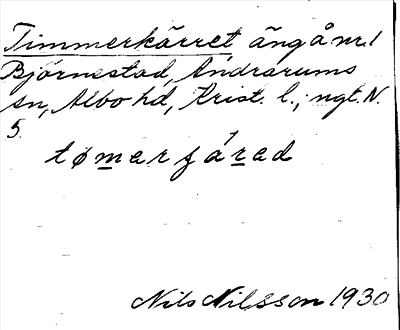 Timmerkärret äng å nr. 1
Björnestad, Andrarums
sn, Albo hd, Krist. l.; ngt. N.
5.
tømerʃárad
Nils Nilsson 1930